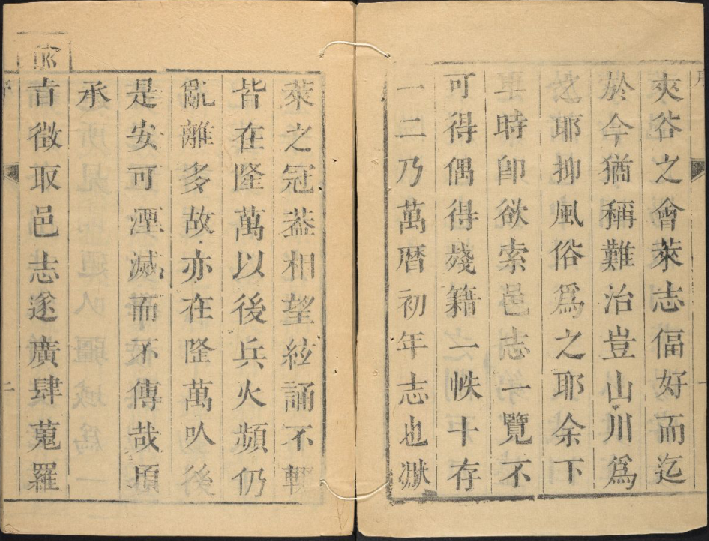 夾谷之會萊志偪好而迄
於今猶稱難治豈山川爲
之耶抑風俗爲之耶余下
車時卽欲索邑志一覽不
可得偶得殘籍一帙十存
一二乃萬曆初年志也
萊之冠葢相望絃誦不輟
皆在隆萬以後兵火頻仍
亂離多故亦在隆萬以後
是安可湮滅而不傳哉頃
承
旨徵取邑志遂廣肆蒐羅